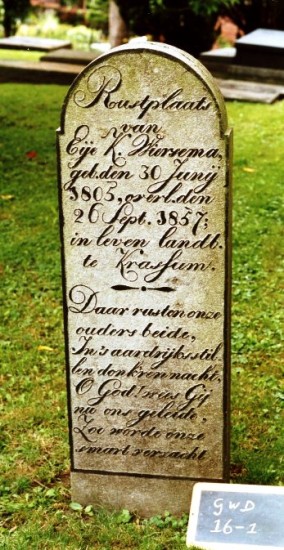 Rustplaats
van
Eije K. Wiersema,
geb. den 30 Junij
1805, overl. den
26 Sept. 1857;
in leven landb.
te Krassum.
Daar rusten onze
ouders beide,
In's aardrijks stil
len donkren nacht,
O God! wees Gij
nu ons geleide,
Zoo worde onze
smart verzacht
GWD
16-1